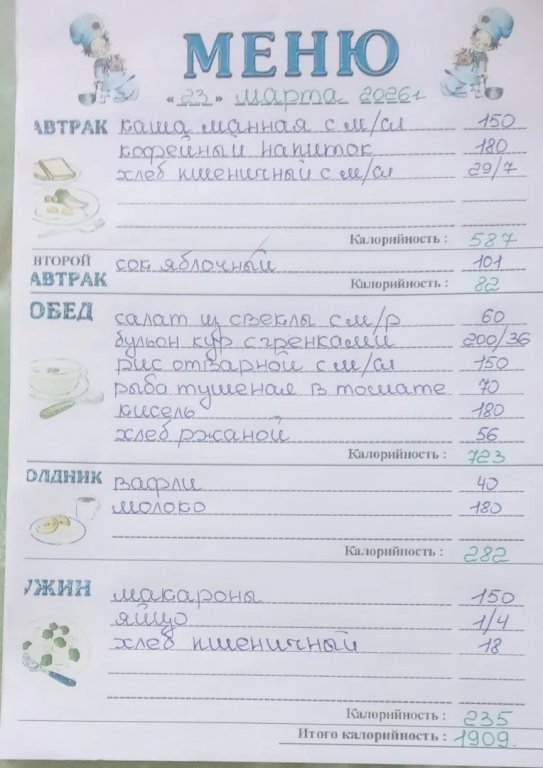 МЕНЮ
«23» марта 2026г
АВТРАК каша манная с м/сл 150
кофейный напиток 180
хлеб пшеничный с м/сл 29/7
Калорийность : 587
ВТОРОЙ
АВТРАК сок яблочный 101
Калорийность : 82
ОБЕД
салат из свеклы с м/р 60
бульон кур с гренками 200/36
рис отварной с м/сл 150
рыба тушеная в томате 70
кисель 180
хлеб ржаной 56
Калорийность : 723
ОЛДНИК вафли 40
молоко 180
Калорийность : 282
УЖИН макароны 150
яйцо 1/4
хлеб пшеничный 18
Калорийность : 235
Итого калорийность : 1909.